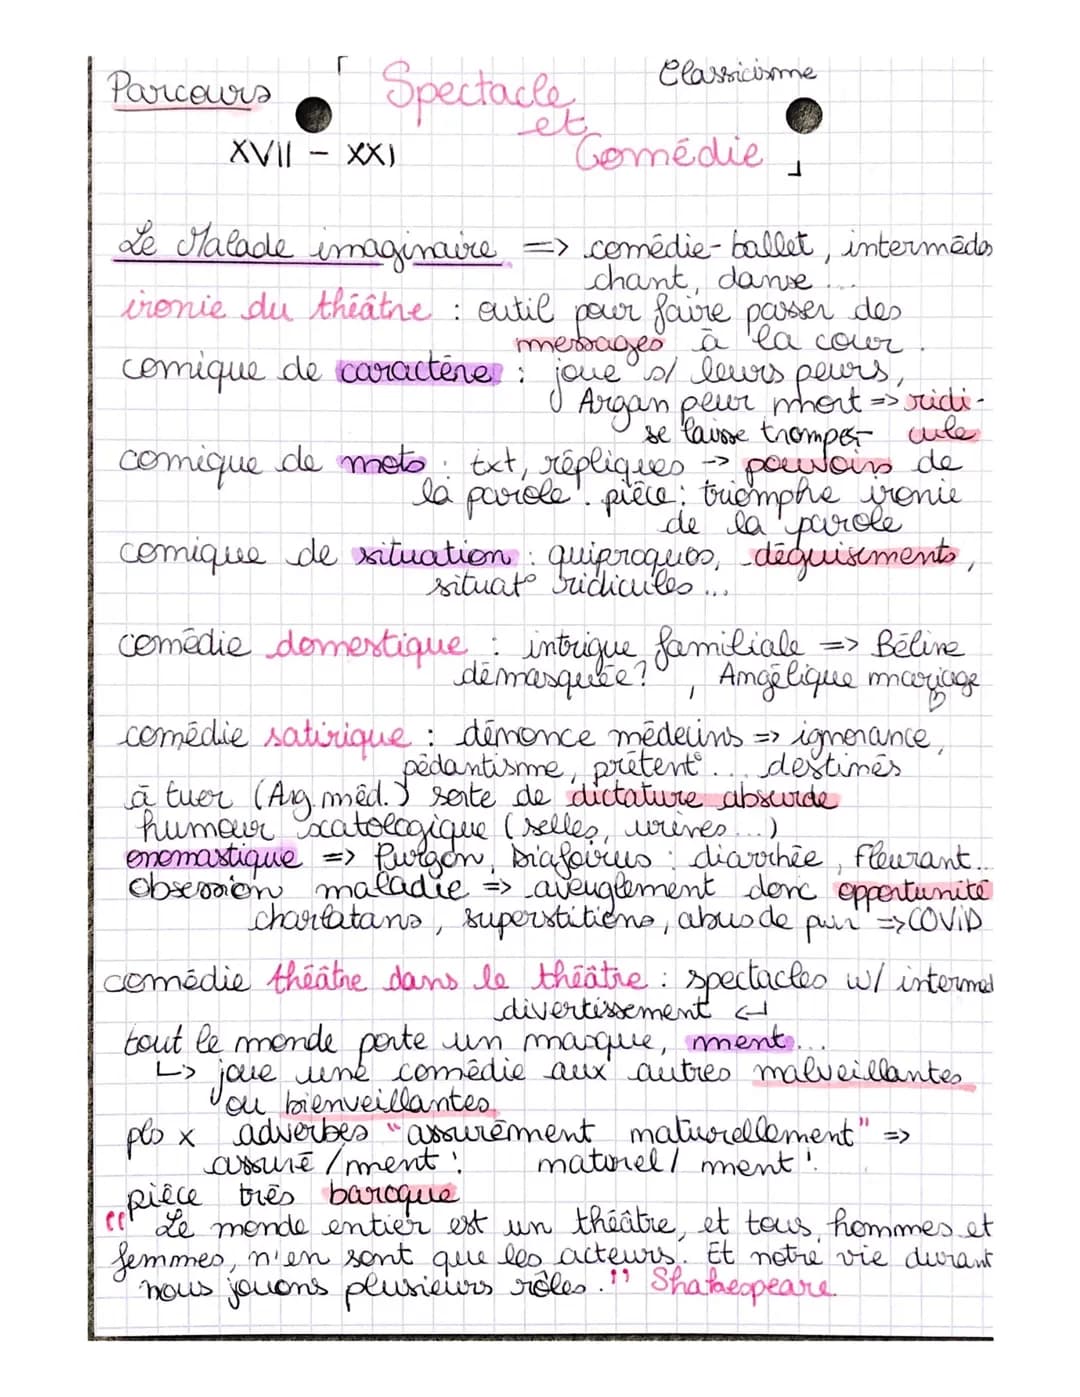 Parcours
⌜ Spectacle
Classicisme
et
XVII – XXI
Comédie ⌟
Le Malade imaginaire => comédie-ballet, intermèdes
chant, danse...
ironie du théâtre : outil pour faire passer des
messages à la cour.
comique de caractère : joue s/ leurs peurs,
Argan peur mort => ridi-
se laisse tromper cule
comique de mots : txt, répliques -> pouvoirs de
la parole ! pièce : triomphe ironie
de la parole
comique de situation : quiproquos, déguisements,
situat° ridicules...
comédie domestique : intrigue familiale => Béline
démasquée? , Angélique mariage
♡
comédie satirique : dénonce médecins => ignorance,
pédantisme, prétent°... destinés
à tuer (Arg. méd.) sorte de dictature absurde
humour scatologique (selles, urines...)
onomastique => Purgon, Diafoirus : diarrhée, Fleurant..
Obsession maladie => aveuglement donc opportunité
charlatans, superstitions, abus de pvr => COVID
comédie théâtre dans le théâtre : spectacles w/ intermed
divertissement ↵
tout le monde porte un masque, ment...
↳ joue une comédie aux autres malveillantes
ou bienveillantes
pls x adverbes "assurément naturellement" =>
assuré / ment ! naturel / ment !
pièce très baroque
" Le monde entier est un théâtre, et tous, hommes et
femmes, n'en sont que les acteurs. Et notre vie durant
nous jouons plusieurs rôles." Shakespeare.